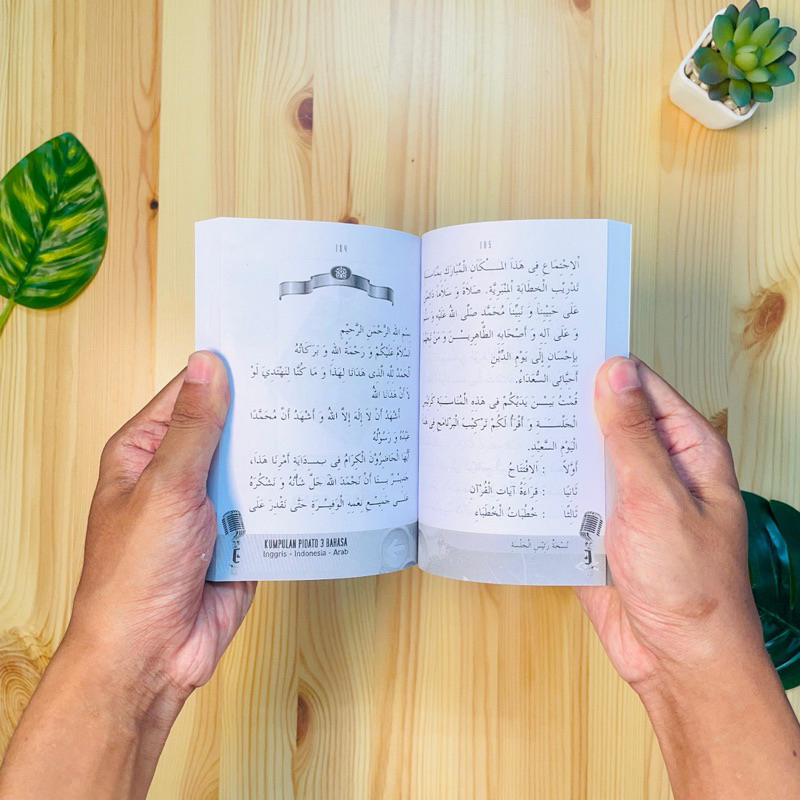 184
بِسْمِ اللهِ الرَّحْمٰنِ الرَّحِيْمِ
اَلسَّلَامُ عَلَيْكُمْ وَ رَحْمَةُ اللهِ وَ بَرَكَاتُهُ
اَلْحَمْدُ لِلّٰهِ الَّذِى هَدَانَا لِهَذَا وَ مَا كُنَّا لِنَهْتَدِيَ لَوْ
لَا أَنْ هَدَانَا اللهُ
أَشْهَدُ أَنْ لَا إِلَهَ إِلاَّ اللهُ وَ أَشْهَدُ أَنَّ مُحَمَّدًا
عَبْدُهُ وَ رَسُوْلُهُ
أَيُّهَا الْحَاضِرُوْنَ الْكِرَامُ فِى بِـدَايَةِ أَمْرِنَا هَذَا،
جَدِيْرٌ بِنَا أَنْ نَحْمَدَ اللهَ جَلَّ شَأْنُهُ وَ نَشْكُرَهُ
عَلَى جَمِيْعِ نِعَمِهِ الْوَفِيْرَةِ حَتَّى نَقْدِرَ عَلَى
KUMPULAN PIDATO 3 BAHASA
Inggris - Indonesia - Arab
185
اَلْاِجْتِمَاعِ فِى هَذَا الْمَـكَانِ الْمُبَارَكِ بِمُنَاسَبَةِ
تَدْرِيْبِ الْخِطَابَةِ الْمِنْبَرِيَّةِ. صَلَاةً وَ سَلَامًا
عَلَى حَبِيْبِنَا وَ نَبِيِّنَا مُحَمَّدٍ صَلَّى اللهُ عَلَيْهِ وَ
وَ عَلَى آلِهِ وَ أَصْحَابِهِ الطَّاهِرِيْـنَ وَ مَنْ تَبِعَهُمْ
بِإِحْسَانٍ إِلَى يَوْمِ الدِّيْنِ
أَحِبَّائِى السُّعَدَاءُ.
قُمْتُ بَيْـنَ يَدَيْكُمْ فِى هَذِهِ الْمُنَاسَبَةِ
الْجَلْسَـةِ وَ أَقْرَأُ لَكُمْ تَرْكِيْبَ الْبَرْنَامَجِ فِى هَذَا
الْيَوْمِ السَّعِيْدِ.
أَوَّلاً : اَلْاِفْتِتَاحُ
ثَانِيًا : قِرَاءَةُ آيَاتِ الْقُرْآنِ
ثَالِثًا : خُطْبَاتُ الْخُطَبَاءِ
نُسْخَةُ رَئِيْسِ الْجَلْسَةِ